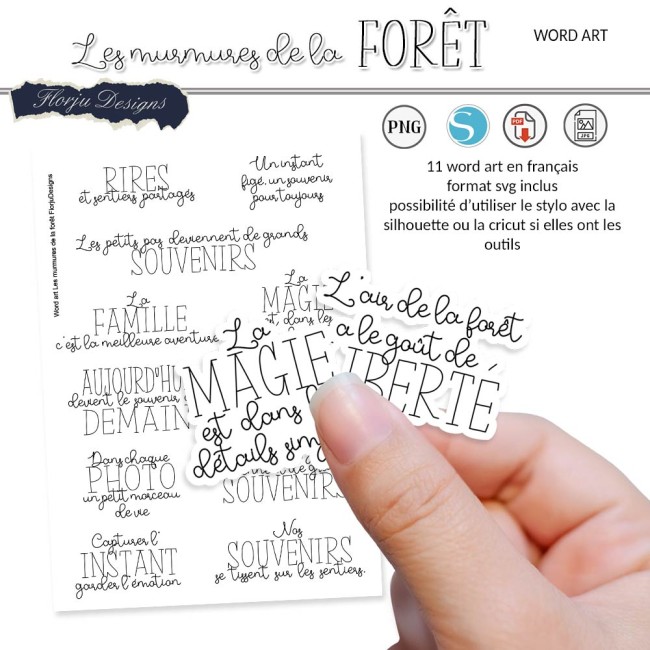 Les murmures de la FORÊT
WORD ART
Florju Designs
PNG
S
PDF
JPG
11 word art en français
format svg inclus
possibilité d'utiliser le stylo avec la
silhouette ou la cricut si elles ont les
outils
Word art Les murmures de la forêt FlorjuDesigns
RIRES
et sentiers partagés
Un instant
figé, un souvenir
pour toujours
Les petits pas deviennent de grands
SOUVENIRS
La
FAMILLE
c'est la meilleure aventure
La
MAGIE
dans les
AUJOURD'HU
devient le souvenir
DEMAIN
Dans chaque
PHOTO
un petit morceau
de vie
SOUVENIRS
Capturer l'
INSTANT
garder l'émotion
Nos
SOUVENIRS
se tissent sur les sentiers.
La
MAGIE
est dans
détails sim
L'air de la forêt
a le goût de
IBERTÉ